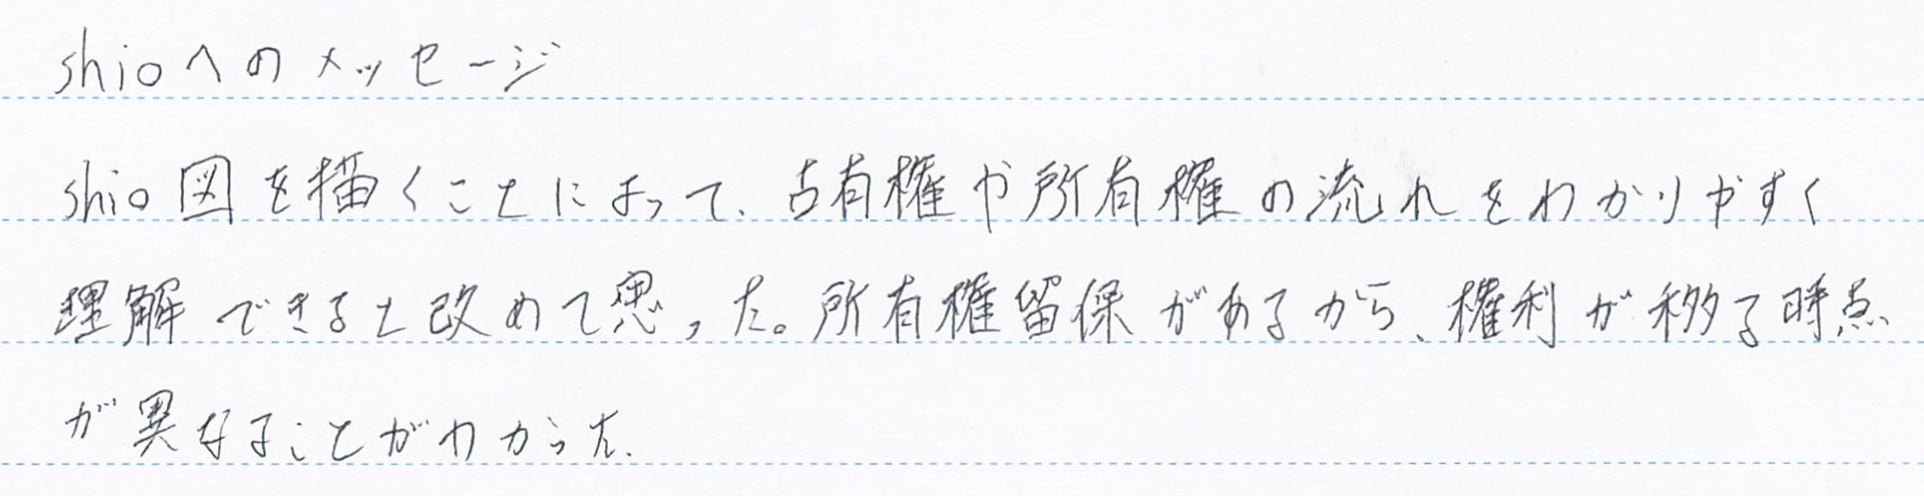 shioへのメッセージ
shio図を描くことによって、占有権や所有権の流れをわかりやすく
理解できると改めて思った。所有権留保があるから、権利が移る時点
が異なることがわかった.